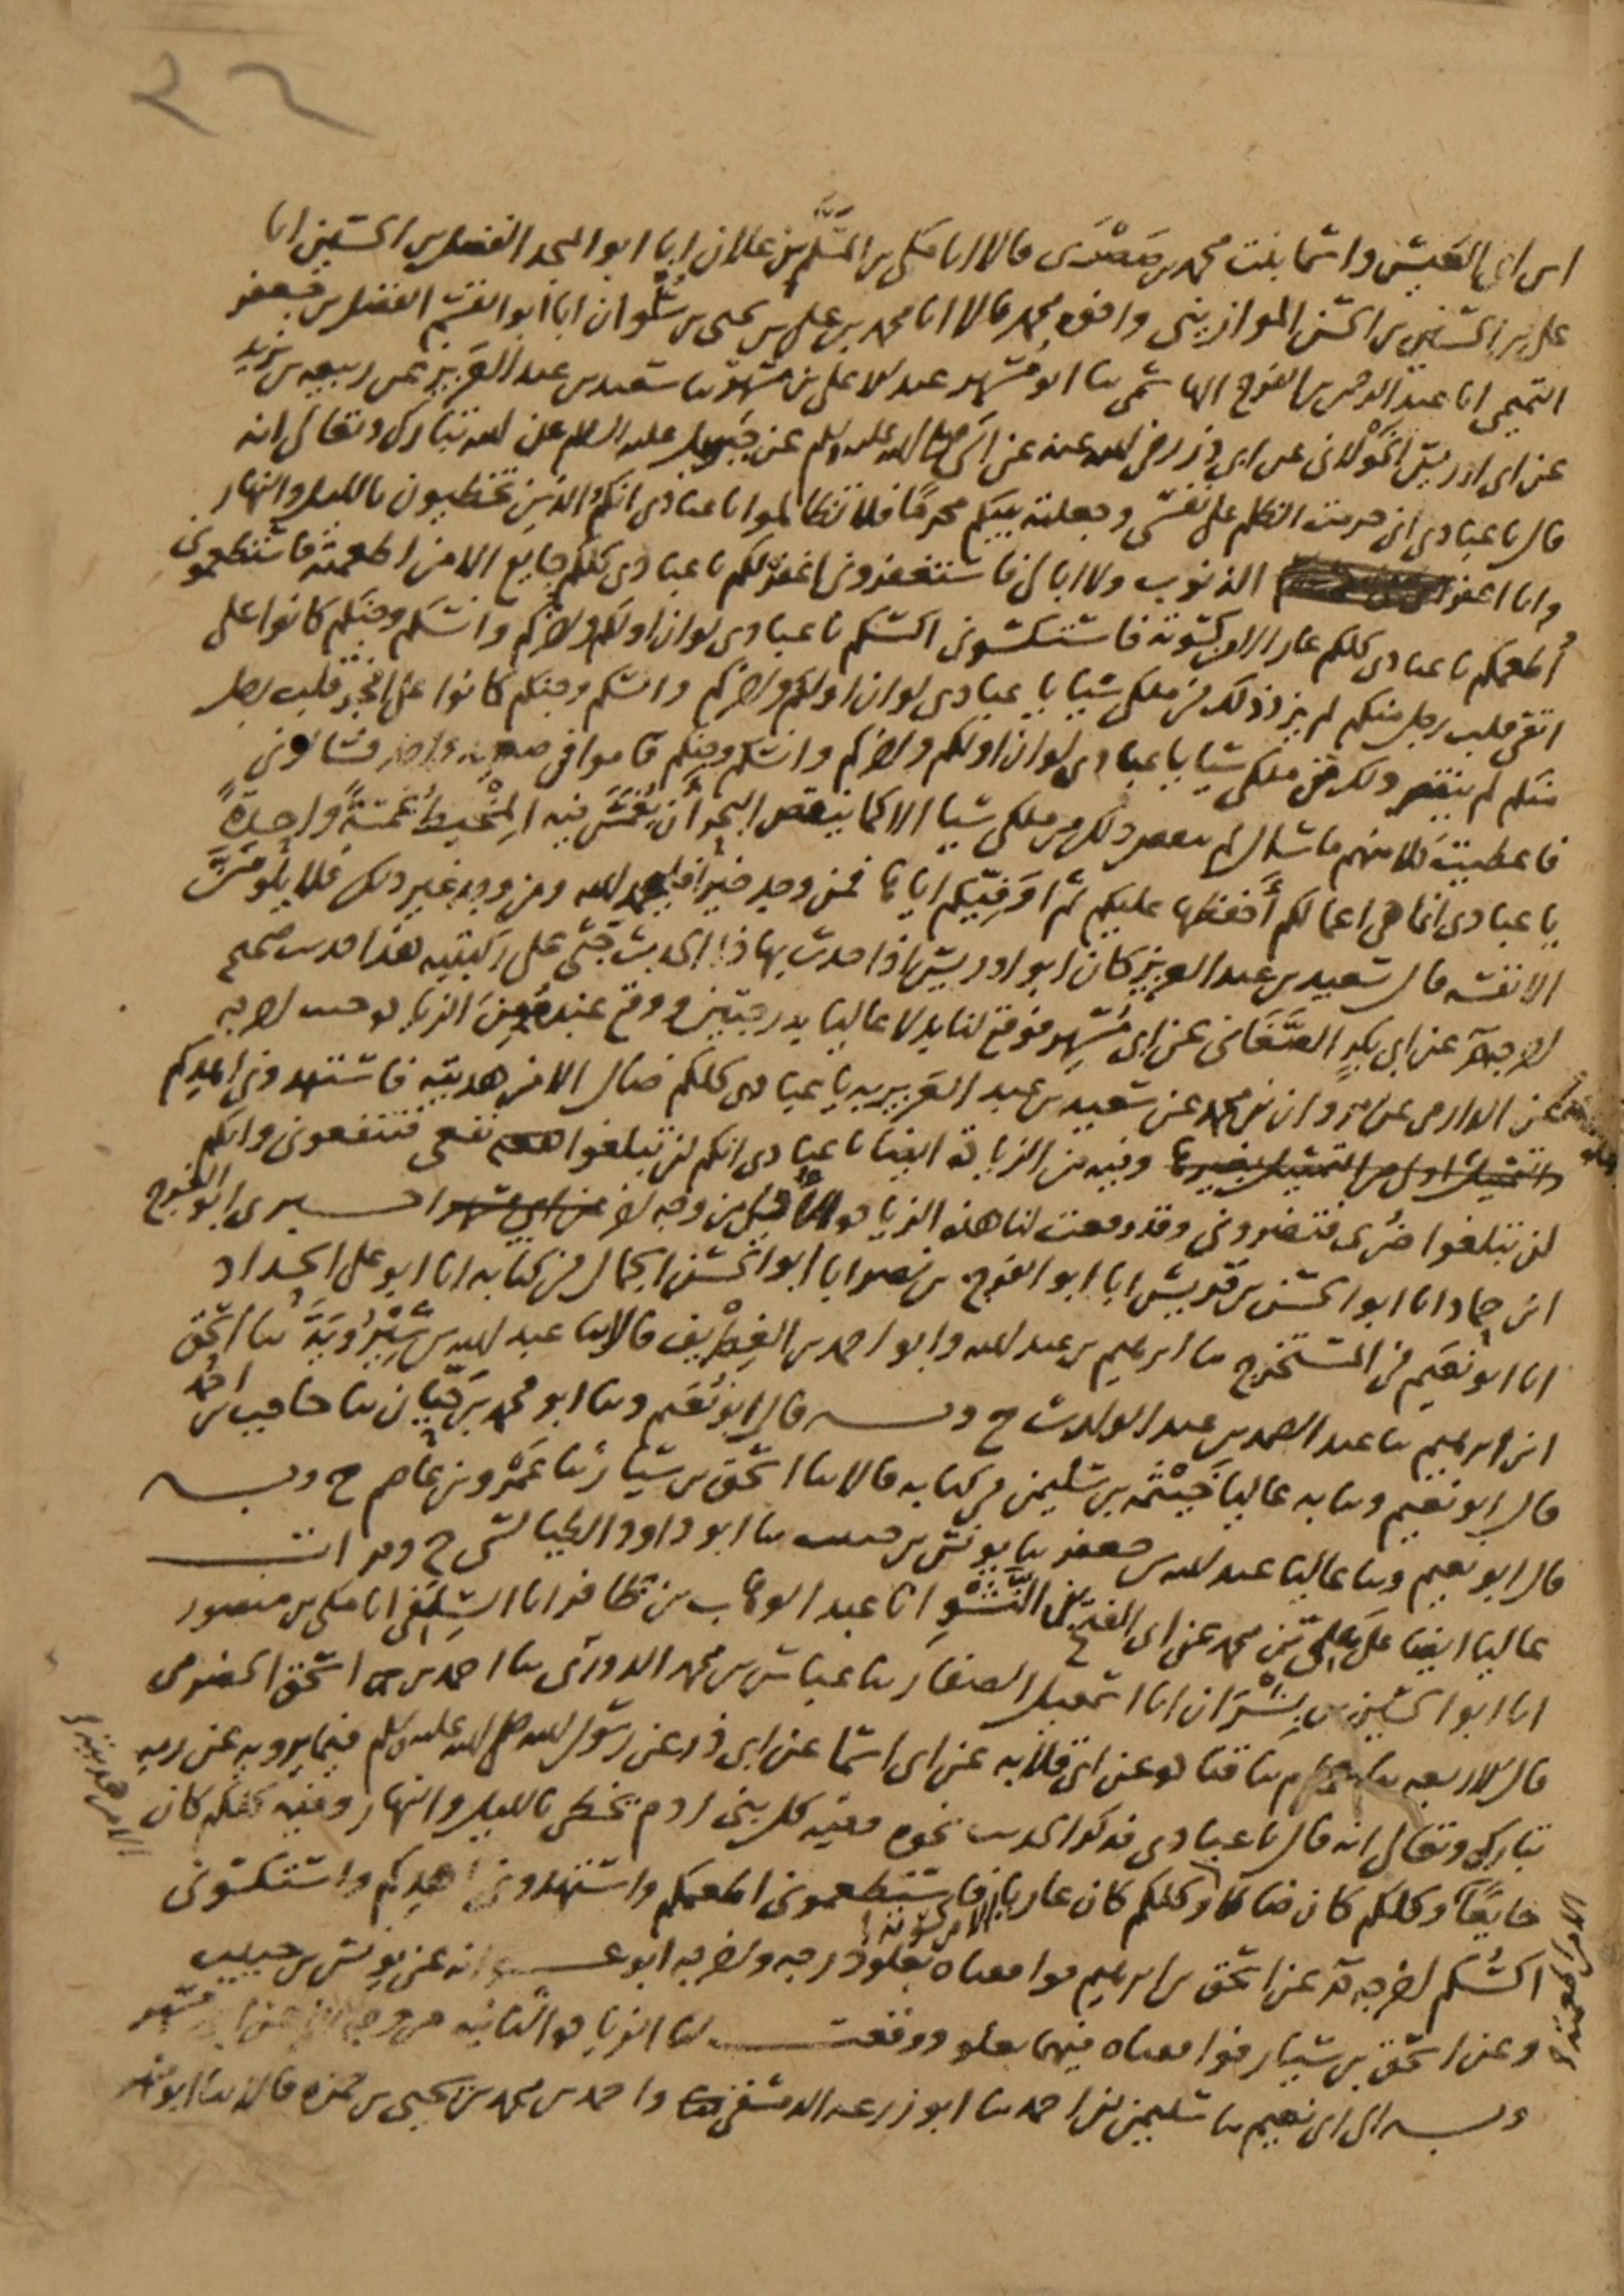 ٢٢
ابن ابي العيش واسما بنت محمد بن صصرى قالا انا مكي بن المسلم بن علان انا ابو المجد الفضل بن الحسين انا
علي بن الحسن بن الحسن الموازيني واخوه محمد قالا انا محمد بن علي بن يحيى بن سلوان انا ابو القسم الفضل بن جعفر
التميمي انا عبد الرحمن بن الفرج الهاشمي ثنا ابو مسهر عبد الاعلى بن مسهر ثنا سعيد بن عبد العزيز عن ربيعه بن يزيد
عن ابي ادريس الخولاني عن ابي ذر رضي الله عنه عن النبي صلى الله عليه وسلم عن جبريل عليه السلم عن الله تبارك وتعالى انه
قال يا عبادي اني حرمت الظلم على نفسي وجعلته بينكم محرمًا فلا تظالموا يا عبادي انكم الذين تخطيون بالليل والنهار
وانا اغفر الذنوب ولا ابالي فاستغفروني اغفر لكم يا عبادي كلكم جايع الا من اطعمته فاستطعموني
أطعمكم يا عبادي كلكم عار الا من كسوته فاستكسوني اكسكم يا عبادي لو ان اولكم واخركم وانسكم وجنكم كانوا على
اتقى قلب رجل منكم لم يزد ذلك في ملكي شيا يا عبادي لو ان اولكم واخركم وانسكم وجنكم كانوا على افجر قلب رجل
منكم لم ينقص ذلك من ملكي شيا يا عبادي لو ان اولكم واخركم وانسكم وجنكم قاموا في صعيد واحد فسالوني
فاعطيت كلا منهم ما سال لم ينقص ذلك من ملكي شيا الا كما ينقص البحر أن يُغمس فيه المِخْيط غمسةً واحدةً
يا عبادي انما هي اعمالكم أحفظها عليكم ثم اوفيكم اياها فمن وجد خيرا فليحمد الله ومن وجد غير ذلك فلا يلومن
الا نفسه قال سعيد بن عبد العزيز كان ابو ادريس اذا حدث بهذا الحديث جثى على ركبتيه هذا حديث صحيح
اخرجه م عن ابي بكر الصغاني عن ابي مسهر فوقع لنا بدلا عاليا بدرجتين ووقع عنده من الزيادة حيث اخرجه
عن الدارمي عن مروان بن محمد عن سعيد بن عبد العزيز به يا عبادي كلكم ضال الا من هديته فاستهدوني اهدكم
وفيه من الزيادة ايضا يا عبادي انكم لن تبلغوا نفعي فتنفعوني وانكم
لن تبلغوا ضري فتضروني وقد وقعت لنا هذه الزيادة من وجه اخر اخبرني ابو الفرج
ابن حماد انا ابو الحسن بن قريش انا ابو الفرج بن نصر انا ابو الحسن الجمال في كتابه انا ابو علي الحداد
انا ابو نعيم في المستخرج ثنا ابرهيم بن عبد الله وابو احمد بن الغطريف قالا ثنا عبد الله بن شيرويه ثنا اسحق
ابن ابرهيم ثنا عبد الصمد بن عبد الوارث ح وبه قال ابو نعيم وثنا ابو محمد بن حيان ثنا حاجب بن احمد
قال ابو نعيم وثنا به عاليا خيثمه بن سليمن في كتابه قالا ثنا اسحق بن سيار ثنا عمرو بن عاصم ح وبه
قال ابو نعيم وثنا عاليا عبد الله بن جعفر ثنا يونس بن حبيب ثنا ابو داود الطيالسي ح وقرات
عاليا ايضا على علي بن محمد عن ابي الفتح بن النشو انا عبد الوهاب بن ظافر انا السلفي انا مكي بن منصور
انا ابو الحسين بن بشران انا اسمعيل الصفار ثنا عباس بن محمد الدوري ثنا احمد بن اسحق الحضرمي
قال الاربعه ثنا همام ثنا قتاده عن ابي قلابه عن ابي اسما عن ابي ذر عن رسول الله صلى الله عليه وسلم فيما يروبه عن ربه
تبارك وتعالى انه قال يا عبادي فذكر الحديث نحوه وفيه كل بني ادم يخطي بالليل والنهار وفيه كلكم كان
جايعًا وكلكم كان ضالا وكلكم كان عاريا فاستطعموني اطعمكم واستهدوني اهدكم واستكسوني
اكسكم اخرجه م عن اسحق بن ابرهيم فوافقناه بعلو درجه واخرجه ابو عوانه عن يونس بن حبيب
وعن اسحق بن سيار فوافقناه فيهما بعلو ووقعت لنا الزيادة الثانيه من وجه
وبه الى ابي نعيم ثنا سليمن بن احمد ثنا ابو زرعه الدمشقي واحمد بن محمد بن يحيى بن حمزه قالا ثنا ابو مسهر
الا من هديته
الا من كسوته
الا من اطعمته